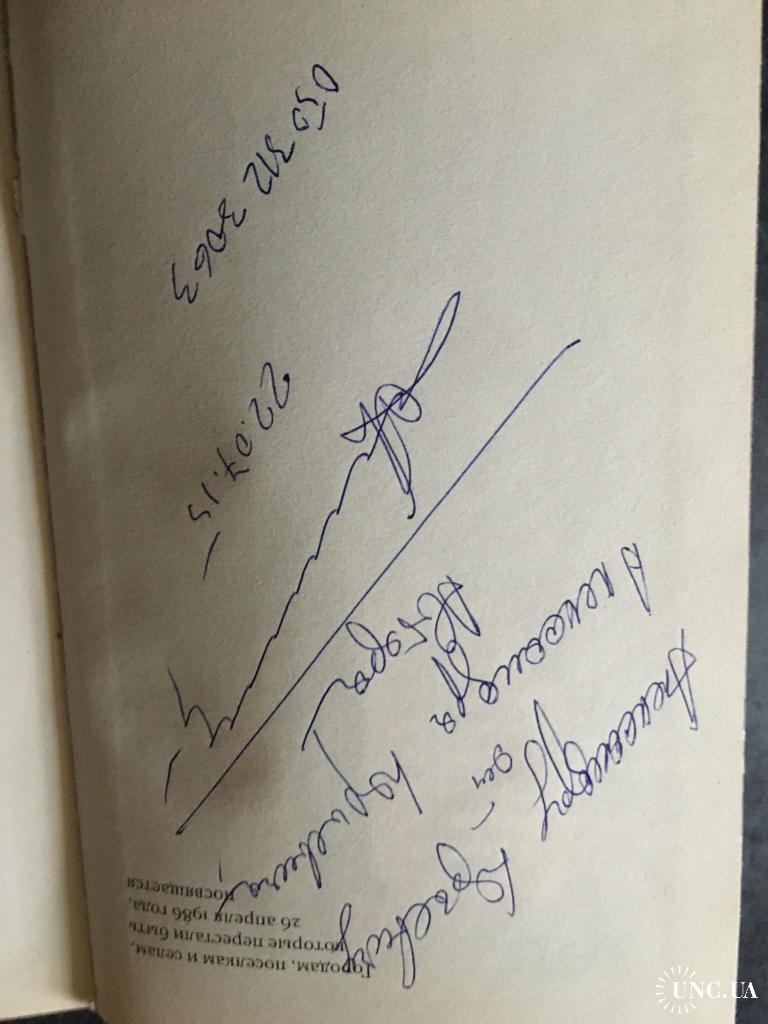 Городам, поселкам и селам,
которые перестали быть
26 апреля 1986 года,
посвящается
Александру
от
Александра
Автора
22.07.15
050 312 3063
UNC.UA